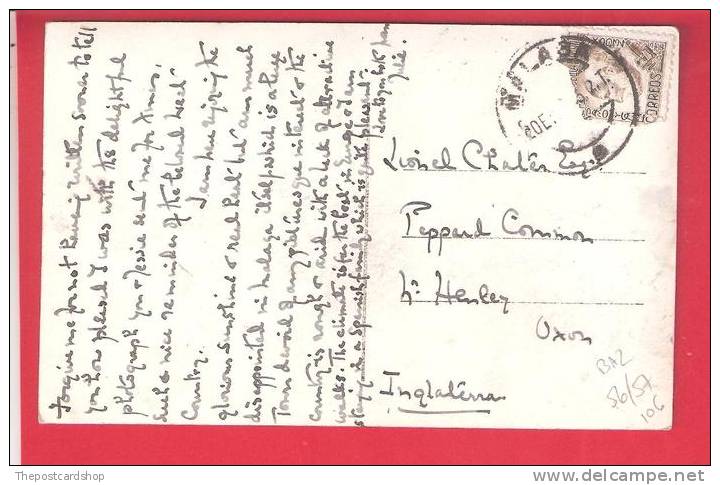 Forgive me for not having written sooner to tell
you how pleased I was with the delightful
photograph you & Jessie sent me for Xmas.
Such a nice reminder of the beloved
Country.
I am here enjoying the
glorious sunshine & real heat but am much
disappointed in Malaga itself which is a large
Town devoid of any picturesque interest & the
country is rough & arid with a lack of attractive
walks. The climate is far the best in Europe & I am
staying in a Spanish family which is quite pleasant.
MALAGA
CORREOS
Lionel Chater Esq.
Peppard Common
Nr Henley
Oxon
Inglaterra
BA2
56/57
106
Thepostcardshop
www.delcampe.net